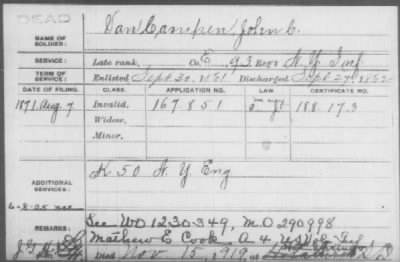 DEAD
NAME OF SOLDIER: Van Campen, John C.
SERVICE: Late rank, Co. E, 93 Reg't N.Y. Inf
TERM OF SERVICE: Enlisted Sept 30, 1861 Discharged Sept 27, 1862
DATE OF FILING. CLASS. APPLICATION NO. LAW. CERTIFICATE NO.
1871. Aug. 7 Invalid. 167 851 188 173
Widow,
Minor.
ADDITIONAL SERVICES: K 50 N.Y. Eng
6-8-25
See WO 1230-349, M.O 290998
REMARKS: Mathew E Cook A 4 US Vol Inf
Died Nov 15, 1919, at